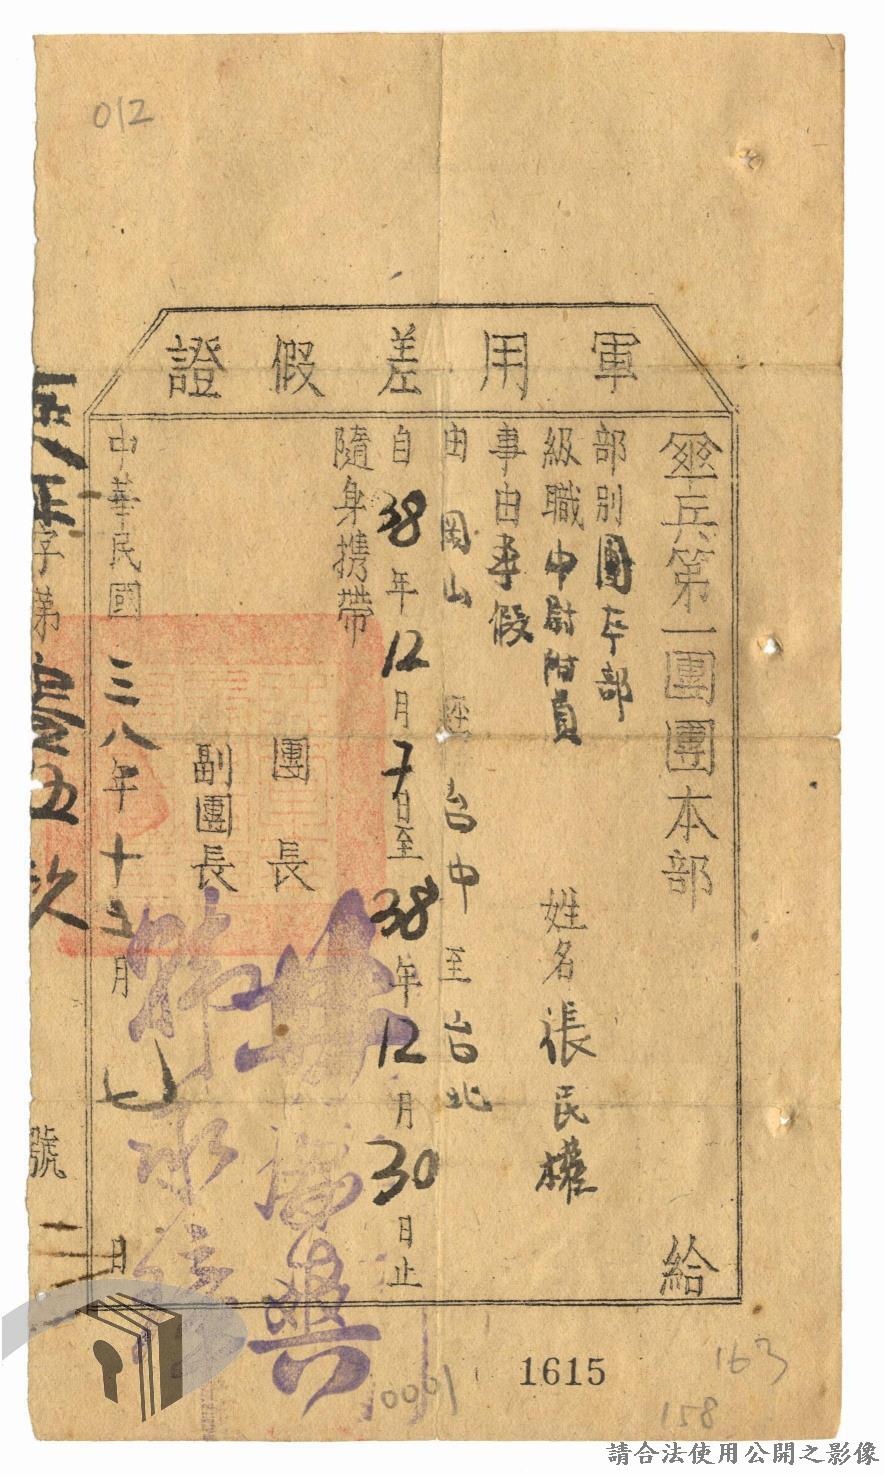 012
軍用差假證
傘兵第一團團本部 給
部別團本部
級職中尉附員 姓名張民權
事由事假
由岡山經台中至台北
自38年12月7日至38年12月30日止
隨身携帶
團長
副團長
中華民國三八年十二月七日
字第壹伍玖號
1615
163
158
0001
請合法使用公開之影像